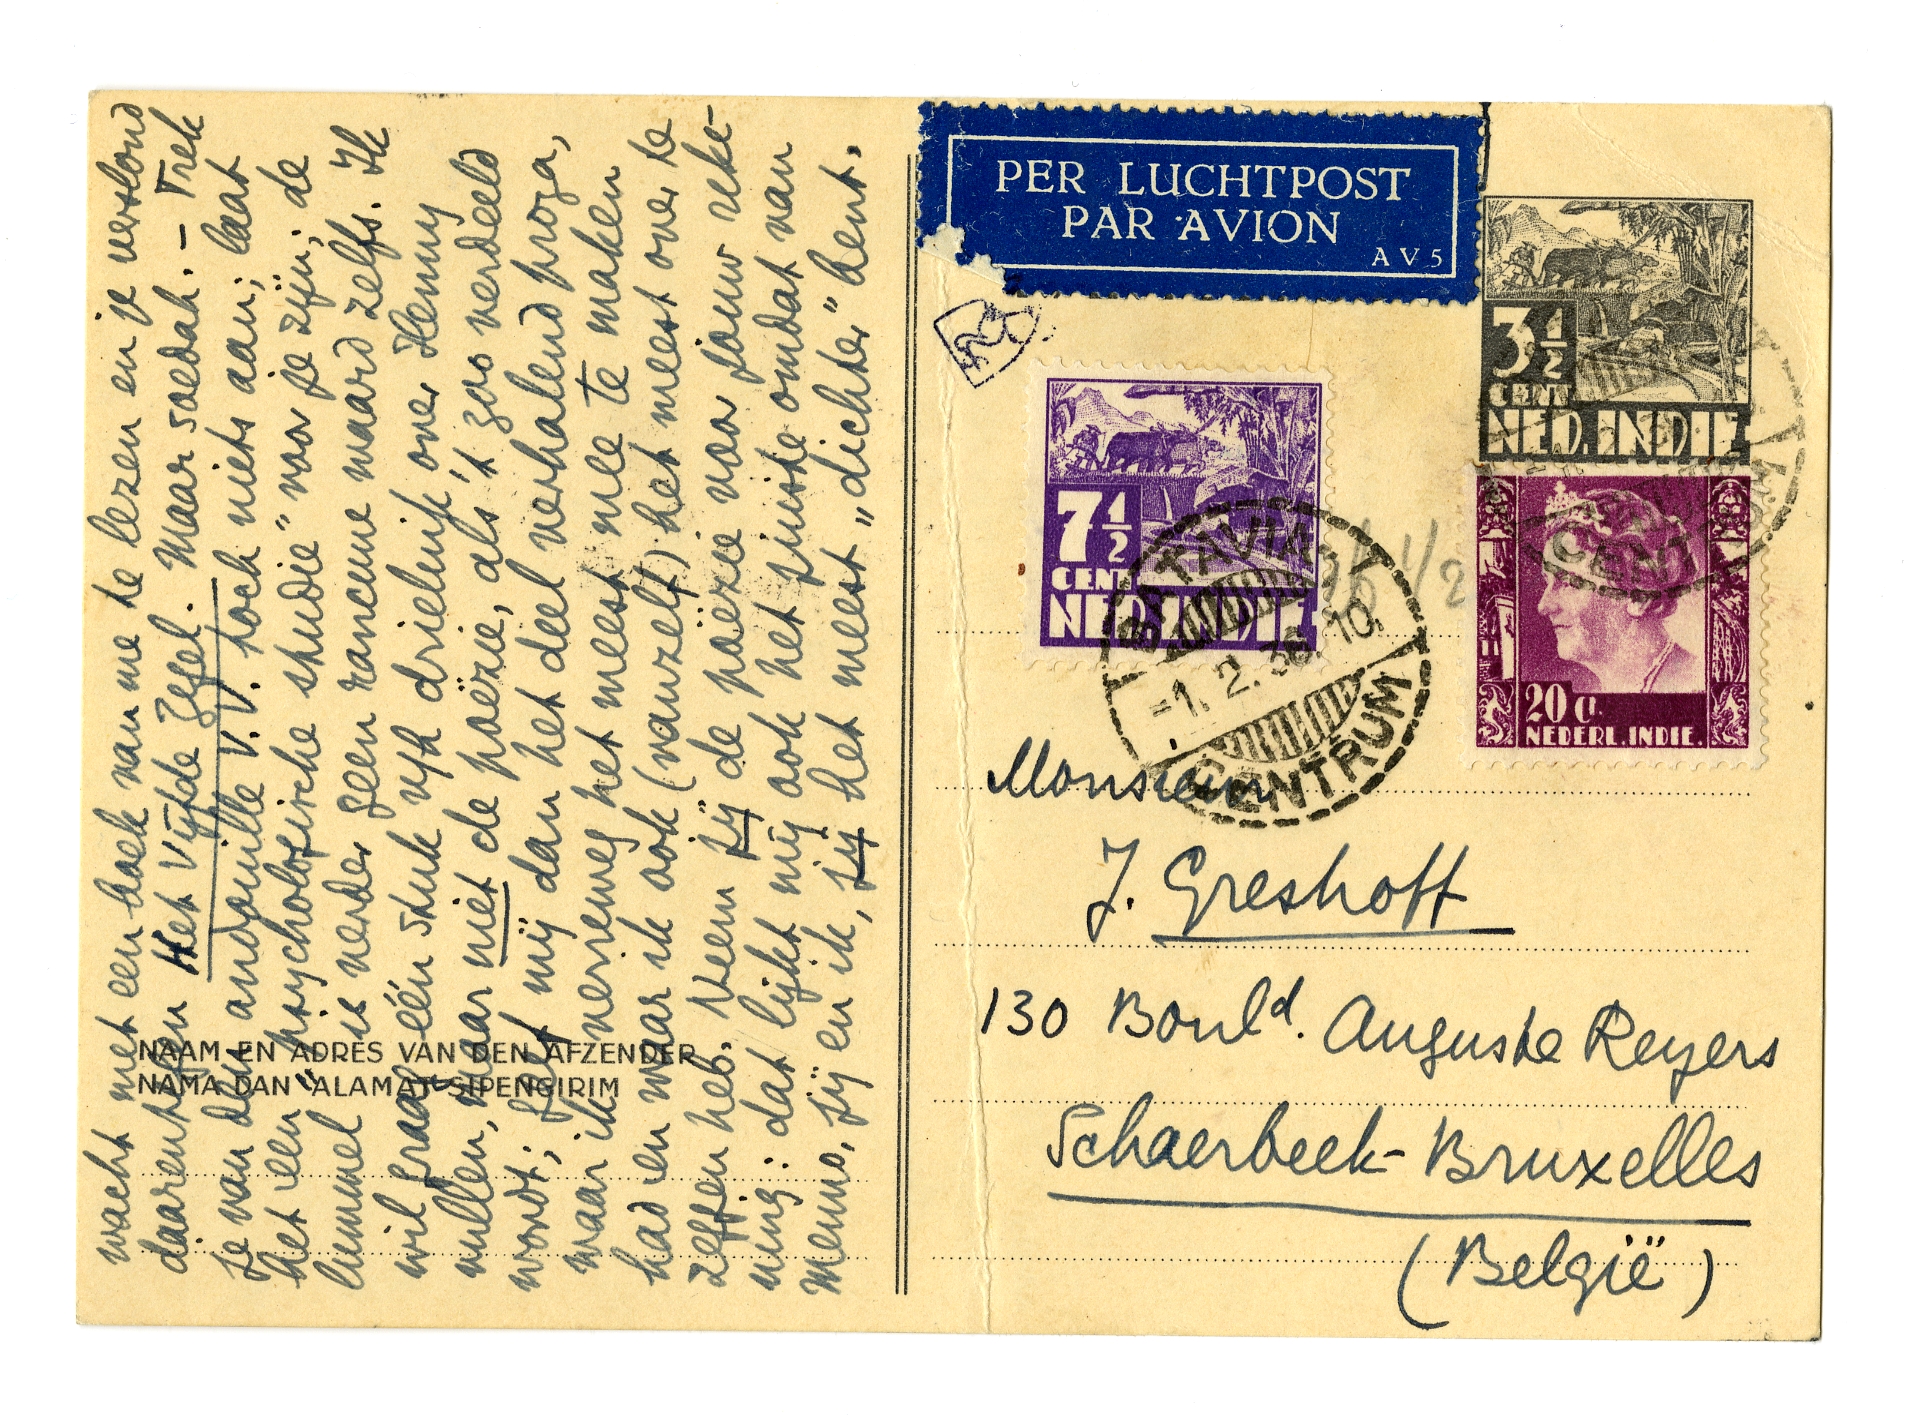 wacht met een boek van me te lezen en je verslond
daarentegen Het Vijfde Zegel. Maar soedah. — Trek
je van die andouille V. V. toch niets aan; laat
het een „psychologische studie" voor je zijn; de
lummel is verder geen rancune waard zelfs. Ik
wil graag één stuk v/h drieluik over Henny
vullen, maar niet de poëzie, als 't zoo verdeeld
wordt; geef mij dan het deel verhalend proza,
waar ik verreweg het meest mee te maken
had en waar ik ook (vanzelf) het meest over te
zeggen heb. Neem jij de poëzie voor jouw reke-
ning: dat lijkt mij ook het juiste omdat van
Menno, jij en ik, jij het meest „dichter" bent.
NAAM EN ADRES VAN DEN AFZENDER
NAMA DAN ALAMAT SIPENGIRIM
PER LUCHTPOST
PAR AVION
AV5
3½
CENT
NED. INDIE
7½
CENT
NED. INDIE
20 ct.
NEDERL. INDIE.
BATAVIA
-1. 2. 36. 10.
CENTRUM
CENT
Monsieur
J. Greshoff
130 Bould. Auguste Reyers
Schaerbeek-Bruxelles
(België)